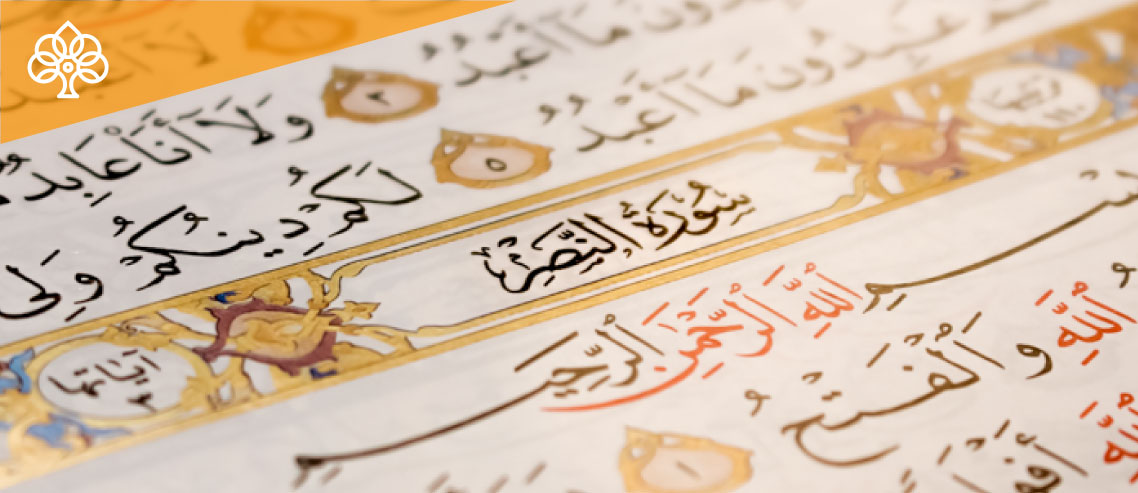 لَا أَعْبُدُ
مَا أَعْبُدُ ٣ وَلَا أَنَا عَابِدٌ
عَـٰبِدُونَ مَا أَعْبُدُ ٥ لَكُمْ دِينُكُمْ وَلِيَ
١١٠ سُورَةُ النَّصْرِ آيَاتُهَا ٣
بِسْمِ اللَّهِ الرَّحْمَـٰنِ الرَّحِيمِ
اللَّهِ وَالْفَتْحُ ١